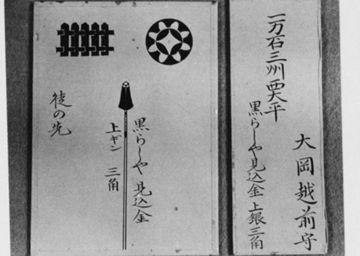 一万石三州西大平
大岡越前守
黒らしや見込金上銀三角
黒らしや見込金
上ギン 三角
徒の先